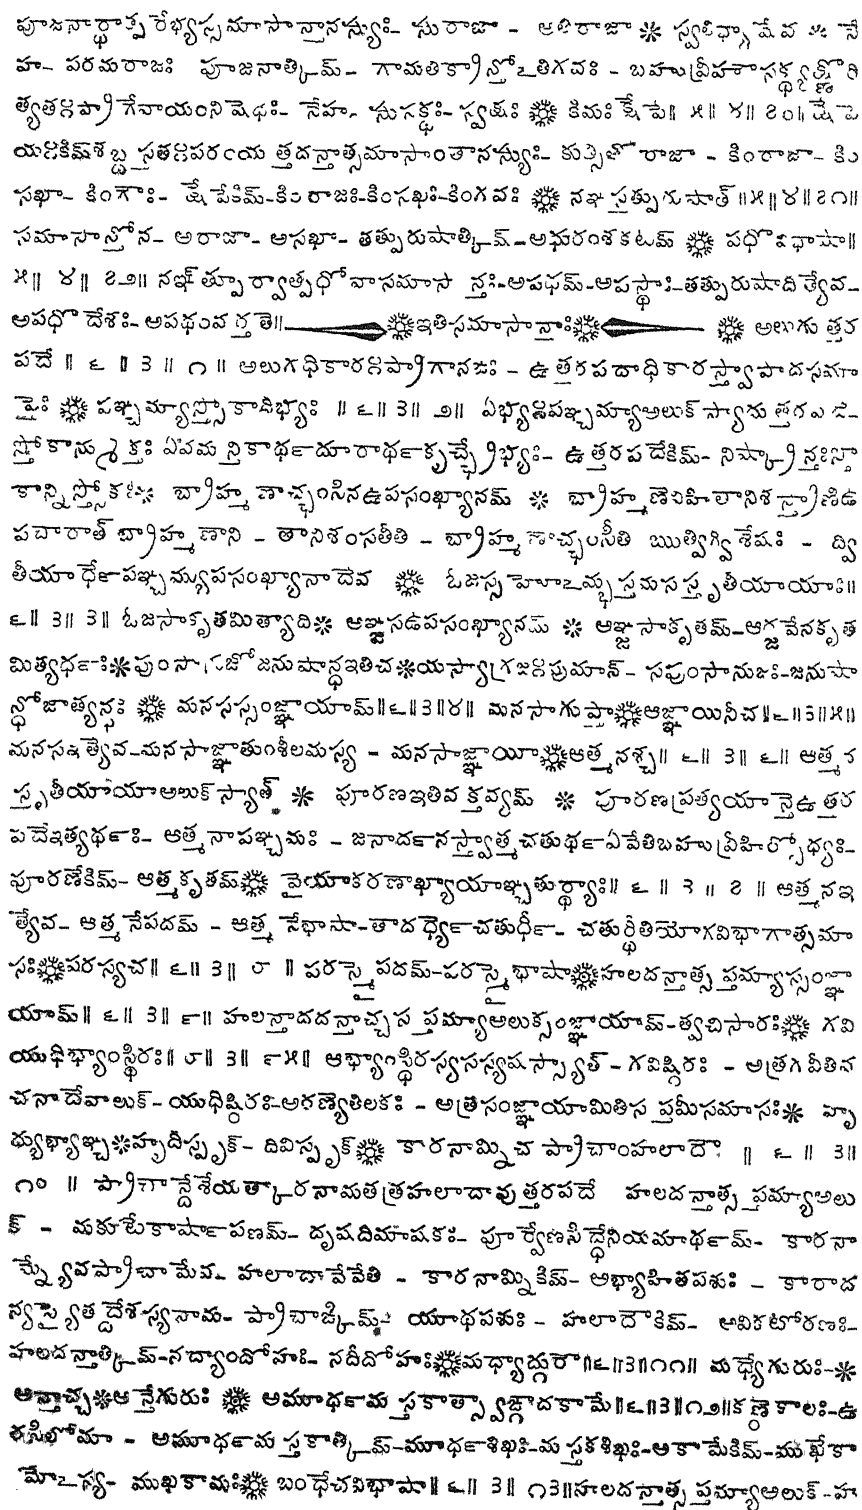 పూజనార్థాత్పరేభ్యస్సమాసాన్తానస్స్యుః- సురాజా - అతిరాజా ❋ స్వతిభ్యామేవ ❋ నే
హ- పరమరాజః పూజనాత్కిమ్- గామతిక్రాన్తోఽతిగవః - బహువ్రీహౌసక్థ్యక్ష్ణోరి
త్యతఃప్రాగేవాయంనిషేధః- నేహ- సుసక్థః- స్వక్షః ❋ కిమః క్షేపే॥ ౫॥ ౪॥ ౭౦॥ క్షేపె
యఃకింశబ్ద స్తతఃపరంయ త్తదన్తాత్సమాసాంతానస్స్యుః- కుత్సితో రాజా - కింరాజా- కిం
సఖా- కింగౌః- క్షేపేకిమ్-కింరాజః-కింసఖః-కింగవః ❋ నఞ స్తత్పురుషాత్॥౫॥౪॥౭౧॥
సమాసాన్తోన- అరాజా- అసఖా- తత్పురుషాత్కిమ్-అధురంశకటమ్ ❋ పథోవిభాషా॥
౫॥ ౪॥ ౭౨॥ నఞ్త్పూర్వాత్పథోవాసమాసా న్తః-అపథమ్-అపన్థాః-తత్పురుషాదిత్యేవ-
అపథో దేశః- అపథంవ ర్తతె॥ ❋ఇతిసమాసాన్తాః❋ ❋ అలుగు త్తర
పదే ॥ ౬ ॥ ౩ ॥ ౧ ॥ అలుగధికారఃప్రాగానఙః - ఉత్తరపదాధికారస్త్వాపాదసమా
ప్తైః ❋ పఞ్చమ్యాస్స్తోకాదిభ్యః ॥ ౬॥ ౩॥ ౨॥ ఏభ్యఃపఞ్చమ్యాఅలుక్ స్యాదు త్తరపదే-
స్తోకాన్ముక్తః ఏవమ న్తికార్థదూరార్థకృచ్ఛ్రేభ్యః- ఉత్తరపదేకిమ్- నిష్క్రాన్తఃస్తో
కాన్నిస్స్తోకః❋ బ్రాహ్మణాచ్ఛంసినఉపసంఖ్యానమ్ ❋ బ్రాహ్మణేవిహితానిశ స్త్రాణిఉ
పచారాత్ బ్రాహ్మణాని - తానిశంసతీతి - బ్రాహ్మణాచ్ఛంసీతి ఋత్విగ్విశేషః - ద్వి
తీయార్థేపఞ్చమ్యుపసంఖ్యానాదేవ ❋ ఓజస్సహోఽమ్భస్తమసస్తృతీయాయాః॥
౬॥ ౩॥ ౩॥ ఓజసాకృతమిత్యాది❋ అఞ్జసఉపసంఖ్యానమ్ ❋ అఞ్జసాకృతమ్-ఆర్జవేనకృత
మిత్యర్థః❋పుంసానుజోజనుషాన్ధఇతిచ❋యస్యాగ్రజఃపుమాన్- సపుంసానుజః-జనుషా
న్ధోజాత్యన్ధః ❋ మనసస్సంజ్ఞాయామ్॥౬॥౩॥౪॥ మనసాగుప్తా❋ఆజ్ఞాయినీచ॥౬॥౩॥౫॥
మనసఇత్యేవ-మనసాజ్ఞాతుంశీలమస్య - మనసాజ్ఞాయీ❋ఆత్మనశ్చ॥ ౬॥ ౩॥ ౬॥ ఆత్మన
స్తృతీయాయాఅలుక్ స్యాత్ ❋ పూరణఇతివక్తవ్యమ్ ❋ పూరణప్రత్యయా న్తెఉత్తర
పదేఇత్యర్థః- ఆత్మనాపఞ్చమః - జనార్దనస్త్వాత్మచతుర్థఏవేతిబహువ్రీహిర్బోధ్యః-
పూరణేకిమ్- ఆత్మకృతమ్❋ వైయాకరణాఖ్యాయాఞ్చతుర్థ్యాః॥ ౬ ॥ ౩ ॥ ౭ ॥ ఆత్మనఇ
త్యేవ- ఆత్మనేపదమ్ - ఆత్మనేభాషా-తాదర్థ్యేచతుర్థీ- చతుర్థీతియోగవిభాగాత్సమా
సః❋పరస్యచ॥ ౬॥ ౩॥ ౮ ॥ పరస్మైపదమ్-పరస్మైభాషా❋హలదన్తాత్సప్తమ్యాస్సంజ్ఞా
యామ్॥ ౬॥ ౩॥ ౯॥ హలన్తాదదన్తాచ్చస ప్తమ్యాఅలుక్సంజ్ఞాయామ్-త్వచిసారః❋ గవి
యుధిభ్యాంస్థిరః॥ ౮॥ ౩॥ ౯౫॥ ఆభ్యాంస్థిరస్యసస్యషస్స్యాత్ - గవిష్ఠిరః - అత్రగవీతివ
చనాదేవాలుక్-యుధిష్ఠిరః-అరణ్యెతిలకః - అత్రసంజ్ఞాయామితిస ప్తమీసమాసః❋ హృ
ద్ద్యుభ్యాఞ్చ❋హృదిస్పృక్- దివిస్పృక్❋ కారనామ్నిచ ప్రాచాంహలాదౌ ॥ ౬ ॥ ౩॥
౧౦ ॥ ప్రాగ్దేశేయత్కారనామతత్రహలాదావుత్తరపదే హలదన్తాత్సప్తమ్యాఅలు
క్ - మకుటేకార్షాపణమ్- దృషదిమాషకః- పూర్వేణసిద్ధేనియమార్థమ్- కారనా
మ్న్యేవప్రాచామేవ- హలాదావేవేతి - కారనామ్నికిమ్- అభ్యాహితపశుః - కారాద
న్యస్యైతద్దేశస్యనామ- ప్రాచాఙ్కిమ్- యూథపశుః - హలాదౌకిమ్- అవికటోరణః-
హలదన్తాత్కిమ్-నద్యాందోహః- నదీదోహః❋మధ్యాద్గురౌ॥౬॥౩॥౧౧॥ మధ్యేగురుః-❋
అన్తాచ్చ❋అన్తేగురుః ❋ అమూర్ధమ స్తకాత్స్వాఙ్గాదకామే॥౬॥౩॥౧౨॥కణ్ఠెకాలః-ఉ
రసిలోమా - అమూర్ధమ స్తకాత్కిమ్-మూర్ధశిఖః-మ స్తకశిఖః-అకామేకిమ్-ముఖేకా
మోఽస్య- ముఖకామః❋ బంధేచవిభాషా॥ ౬॥ ౩॥ ౧౩॥హలదన్తాత్స ప్తమ్యాఅలుక్-హ